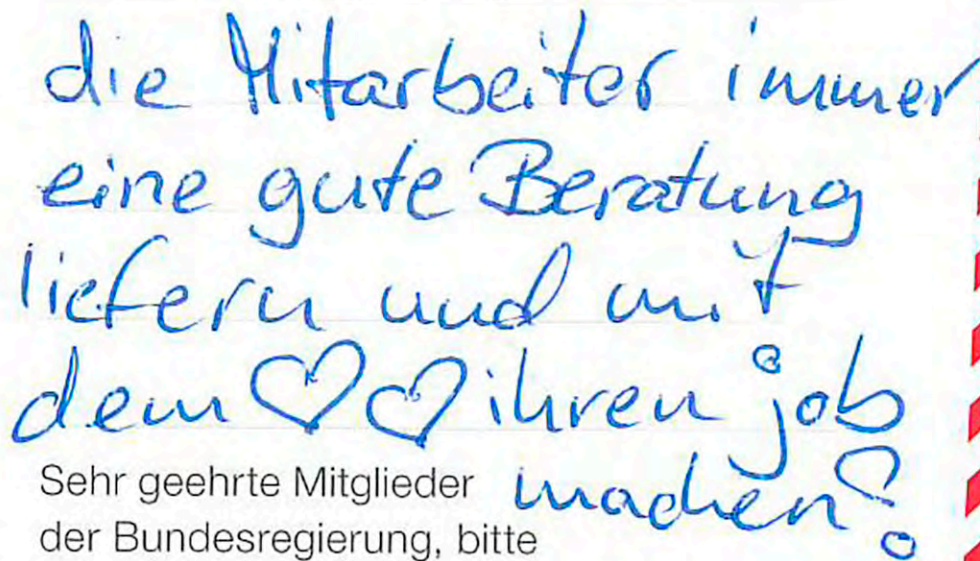 die Mitarbeiter immer
eine gute Beratung
liefern und mit
dem ♡♡ ihren job
machen!
Sehr geehrte Mitglieder
der Bundesregierung, bitte